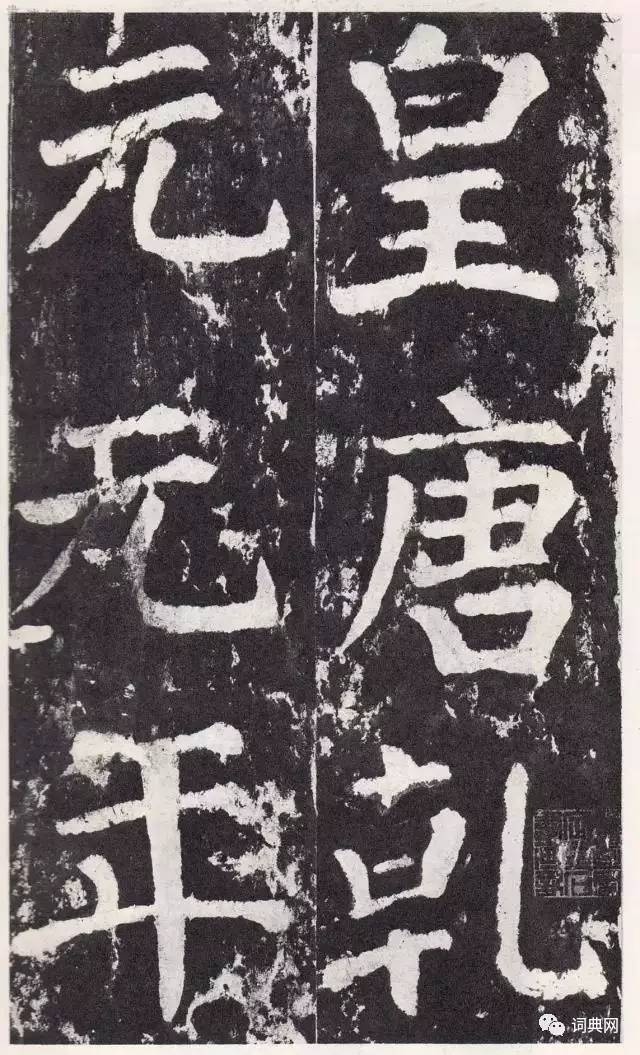 皇唐乾
元元年
词典网